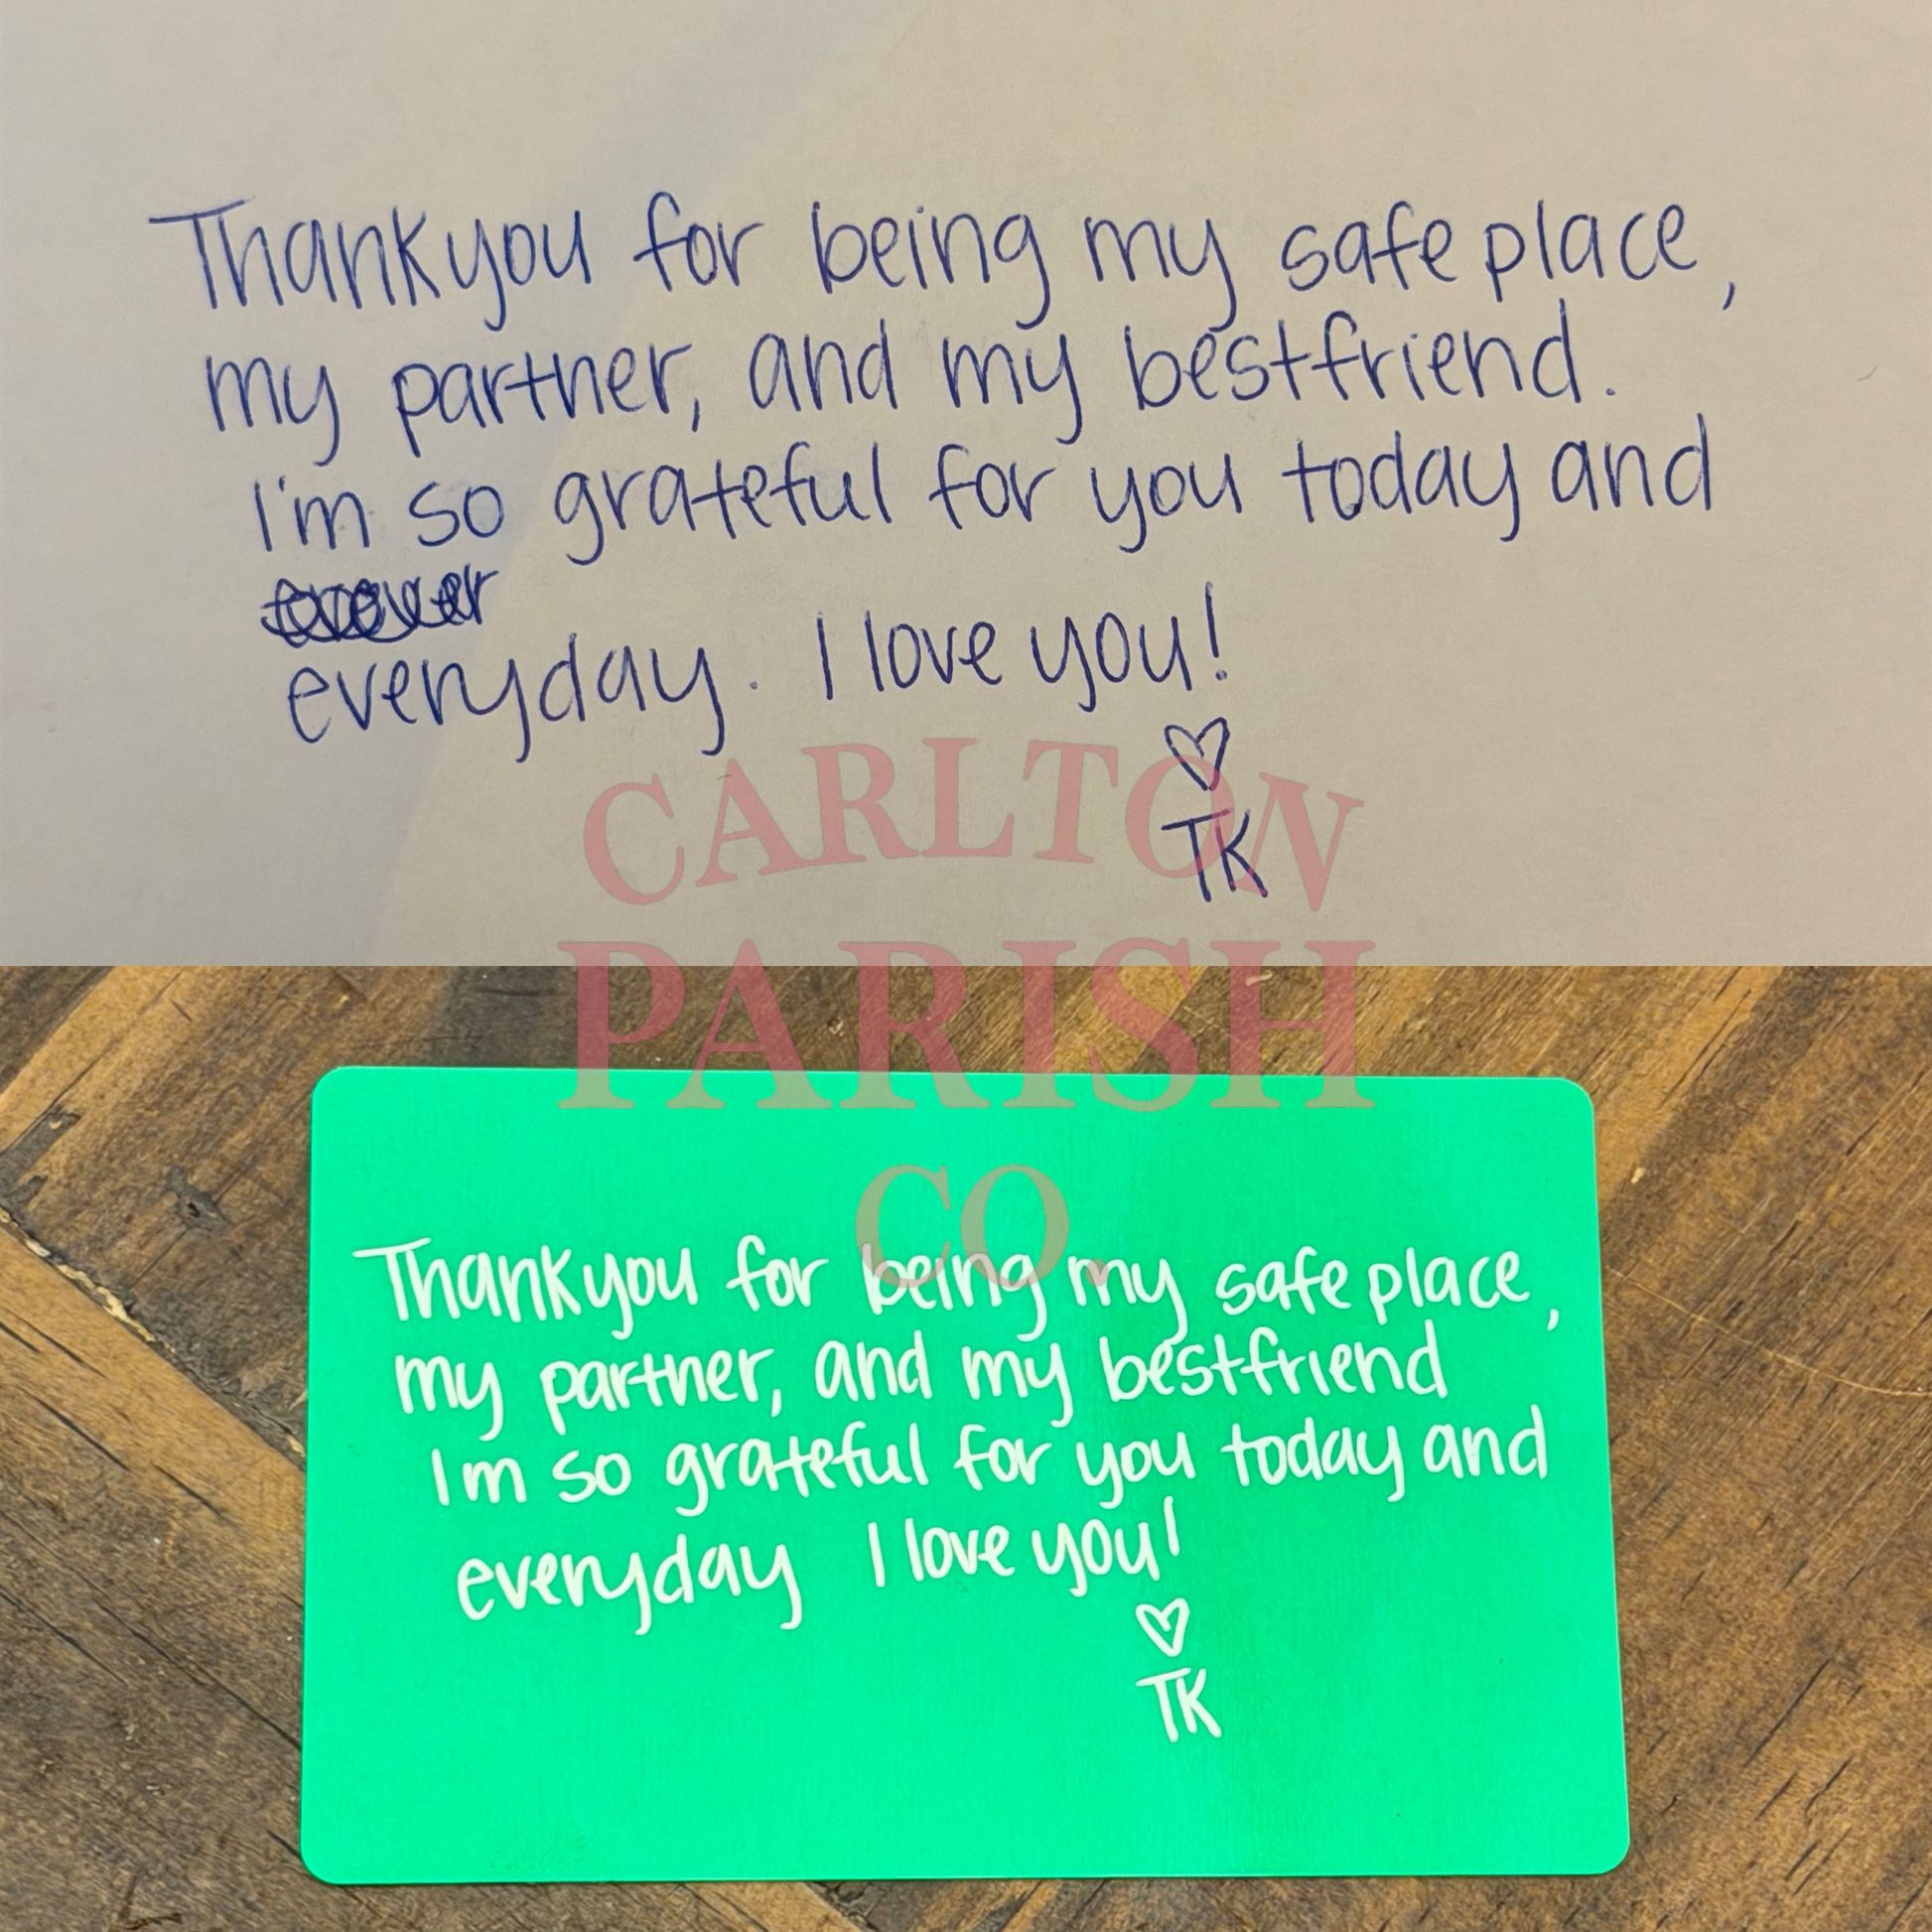 Thankyou for being my safe place,
my partner, and my bestfriend.
I'm so grateful for you today and
everyday. I love you!
TK
CARLTON
PARISH
CO.
Thankyou for being my safe place,
my partner, and my bestfriend
Im so grateful for you today and
everyday I love you!
TK